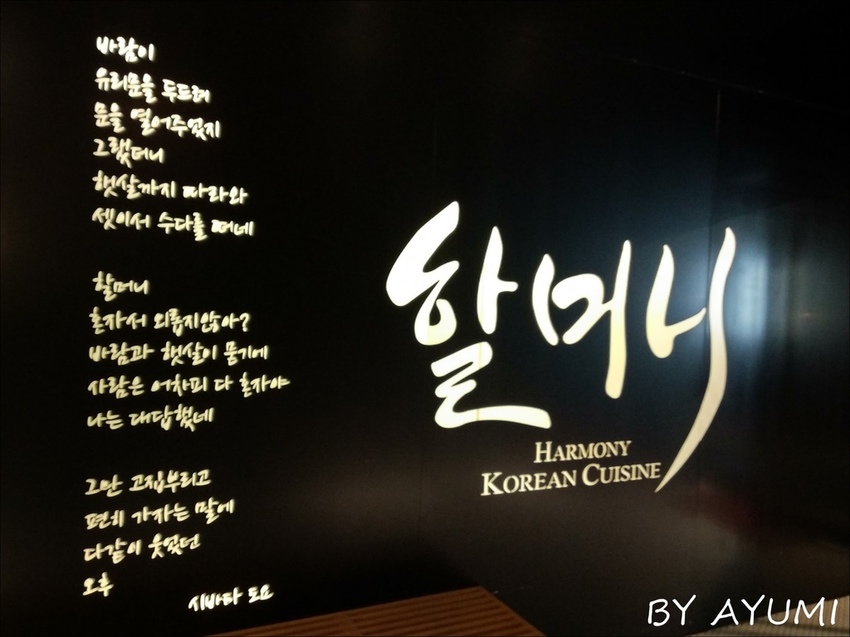 바람이
유리문을 두드려
문을 열어주었지
그랬더니
햇살까지 따라와
셋이서 수다를 떠네
할머니
혼자서 외롭지않아?
바람과 햇살이 묻기에
사람은 어차피 다 혼자야
나는 대답했네
그만 고집부리고
편히 가자는 말에
다같이 웃었던
오후
시바타 도요
할머니
HARMONY
KOREAN CUISINE
BY AYUMI